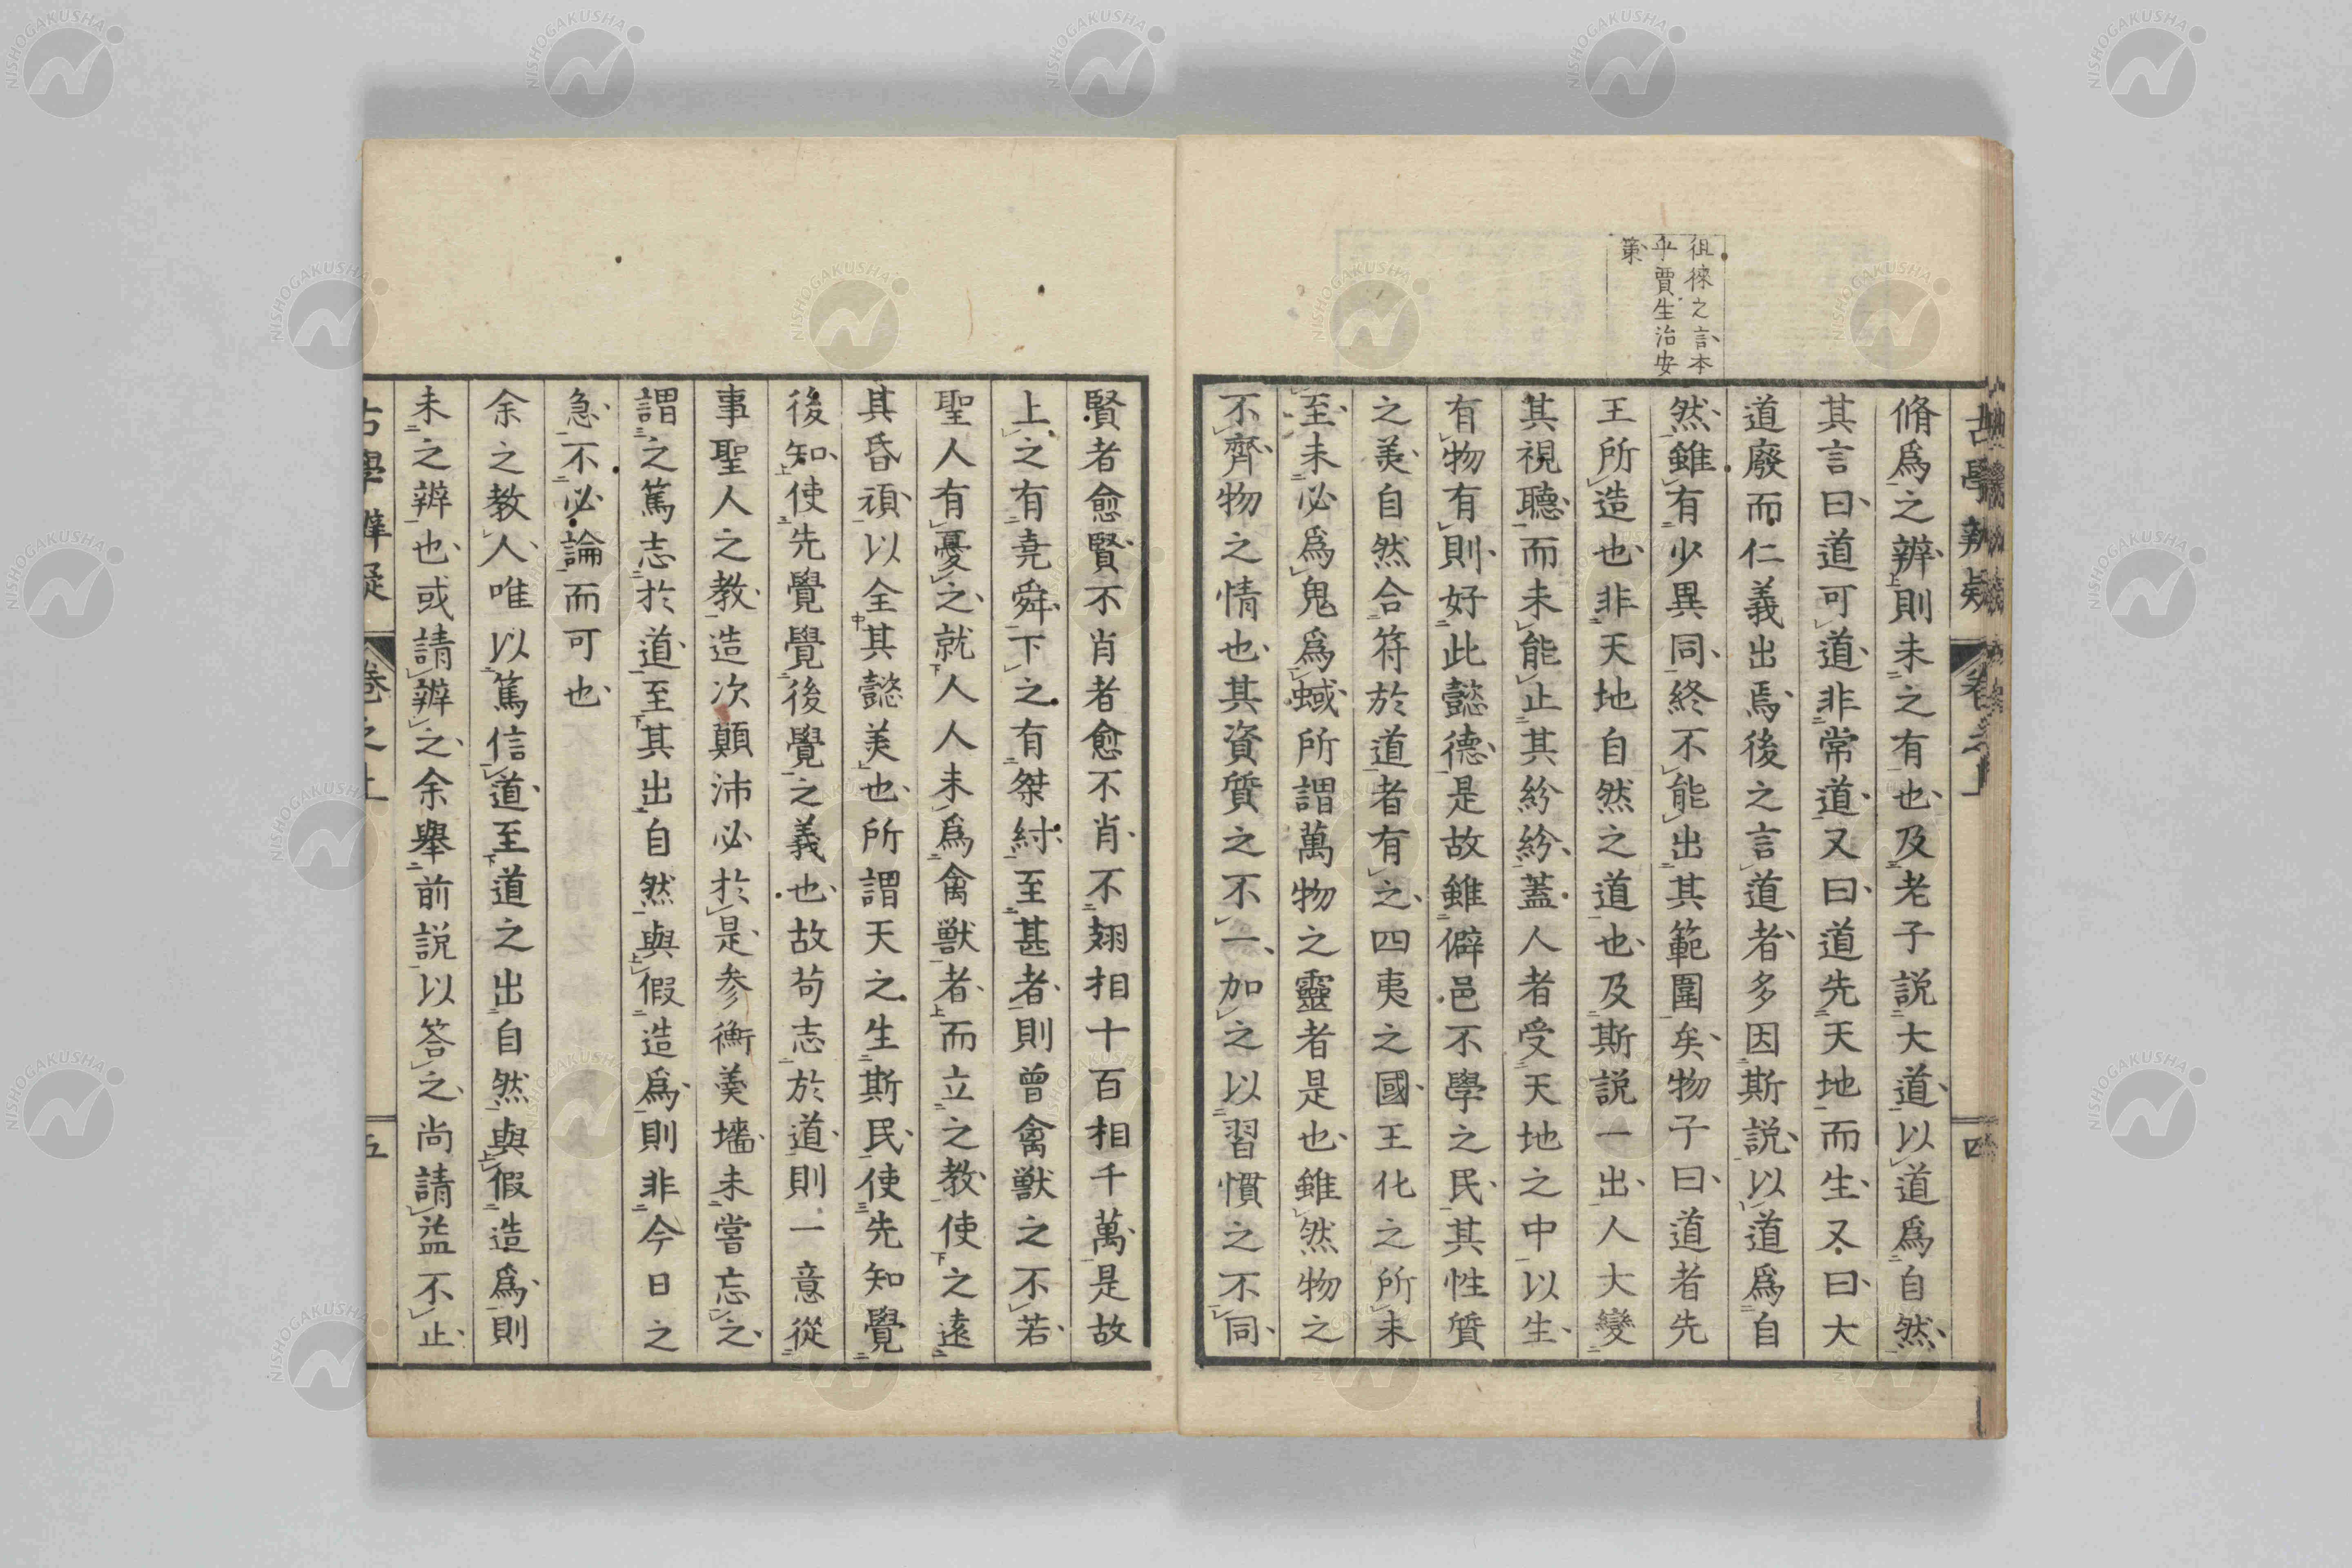 徂徠之言本
乎賈生治安
策
脩爲之辨則未之有也及老子説大道以道爲自然
其言曰道可道非常道又曰道先天地而生又曰大
道廢而仁義出焉後之言道者多因斯説以道爲自
然雖有少異同終不能出其範圍矣物子曰道者先
王所造也非天地自然之道也及斯説一出人大變
其視聽而未能止其紛紛蓋人者受天地之中以生
有物有則好此懿德是故雖僻邑不學之民其性質
之美自然合符於道者有之四夷之國王化之所未
至未必爲鬼爲蜮所謂萬物之靈者是也雖然物之
不齊物之情也其資質之不一加之以習慣之不同
賢者愈賢不肖者愈不肖不翅相十百相千萬是故
上之有堯舜下之有桀紂至甚者則曾禽獸之不若
聖人有憂之就人人未爲禽獸者而立之教使之遠
其昏頑以全其懿美也所謂天之生斯民使先知覺
後知使先覺覺後覺之義也故苟志於道則一意從
事聖人之教造次顛沛必於是參衡羹墻未嘗忘之
謂之篤志於道至其出自然與假造爲則非今日之
急不必論而可也
余之教人唯以篤信道至道之出自然與假造爲則
未之辨也或請辨之余舉前説以答之尚請益不止
古學辨疑
卷之上
五